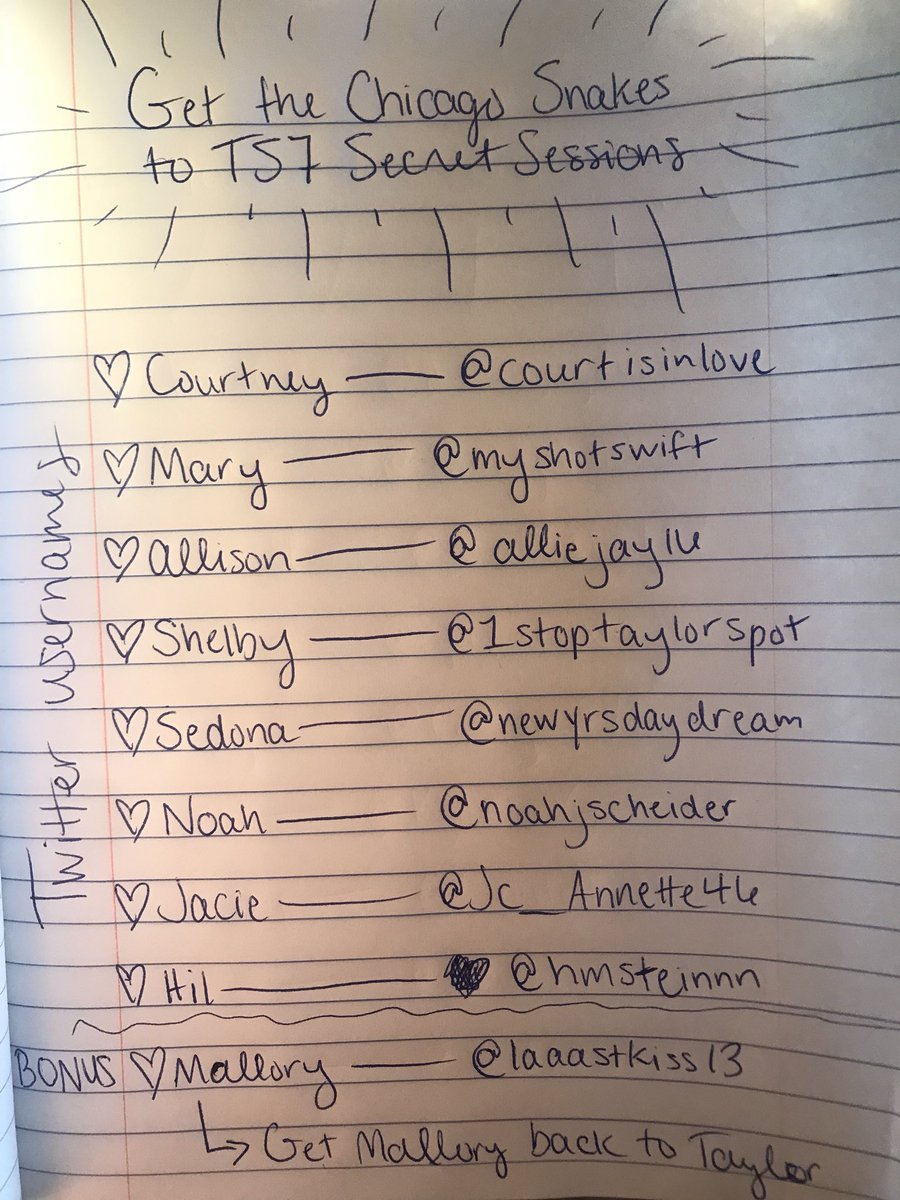 Get the Chicago Snakes
to TS7 Secret Sessions
Twitter usernames
♡ Courtney — @courtisinlove
♡ Mary — @myshotswift
♡ Allison — @alliejay16
♡ Shelby — @1stoptaylorspot
♡ Sedona — @newyrsdaydream
♡ Noah — @noahjscheider
♡ Jacie — @Jc_Annette46
♡ Hil — ♥ @hmsteinnn
BONUS ♡ Mallory — @laaastkiss13
↳ Get Mallory back to Taylor